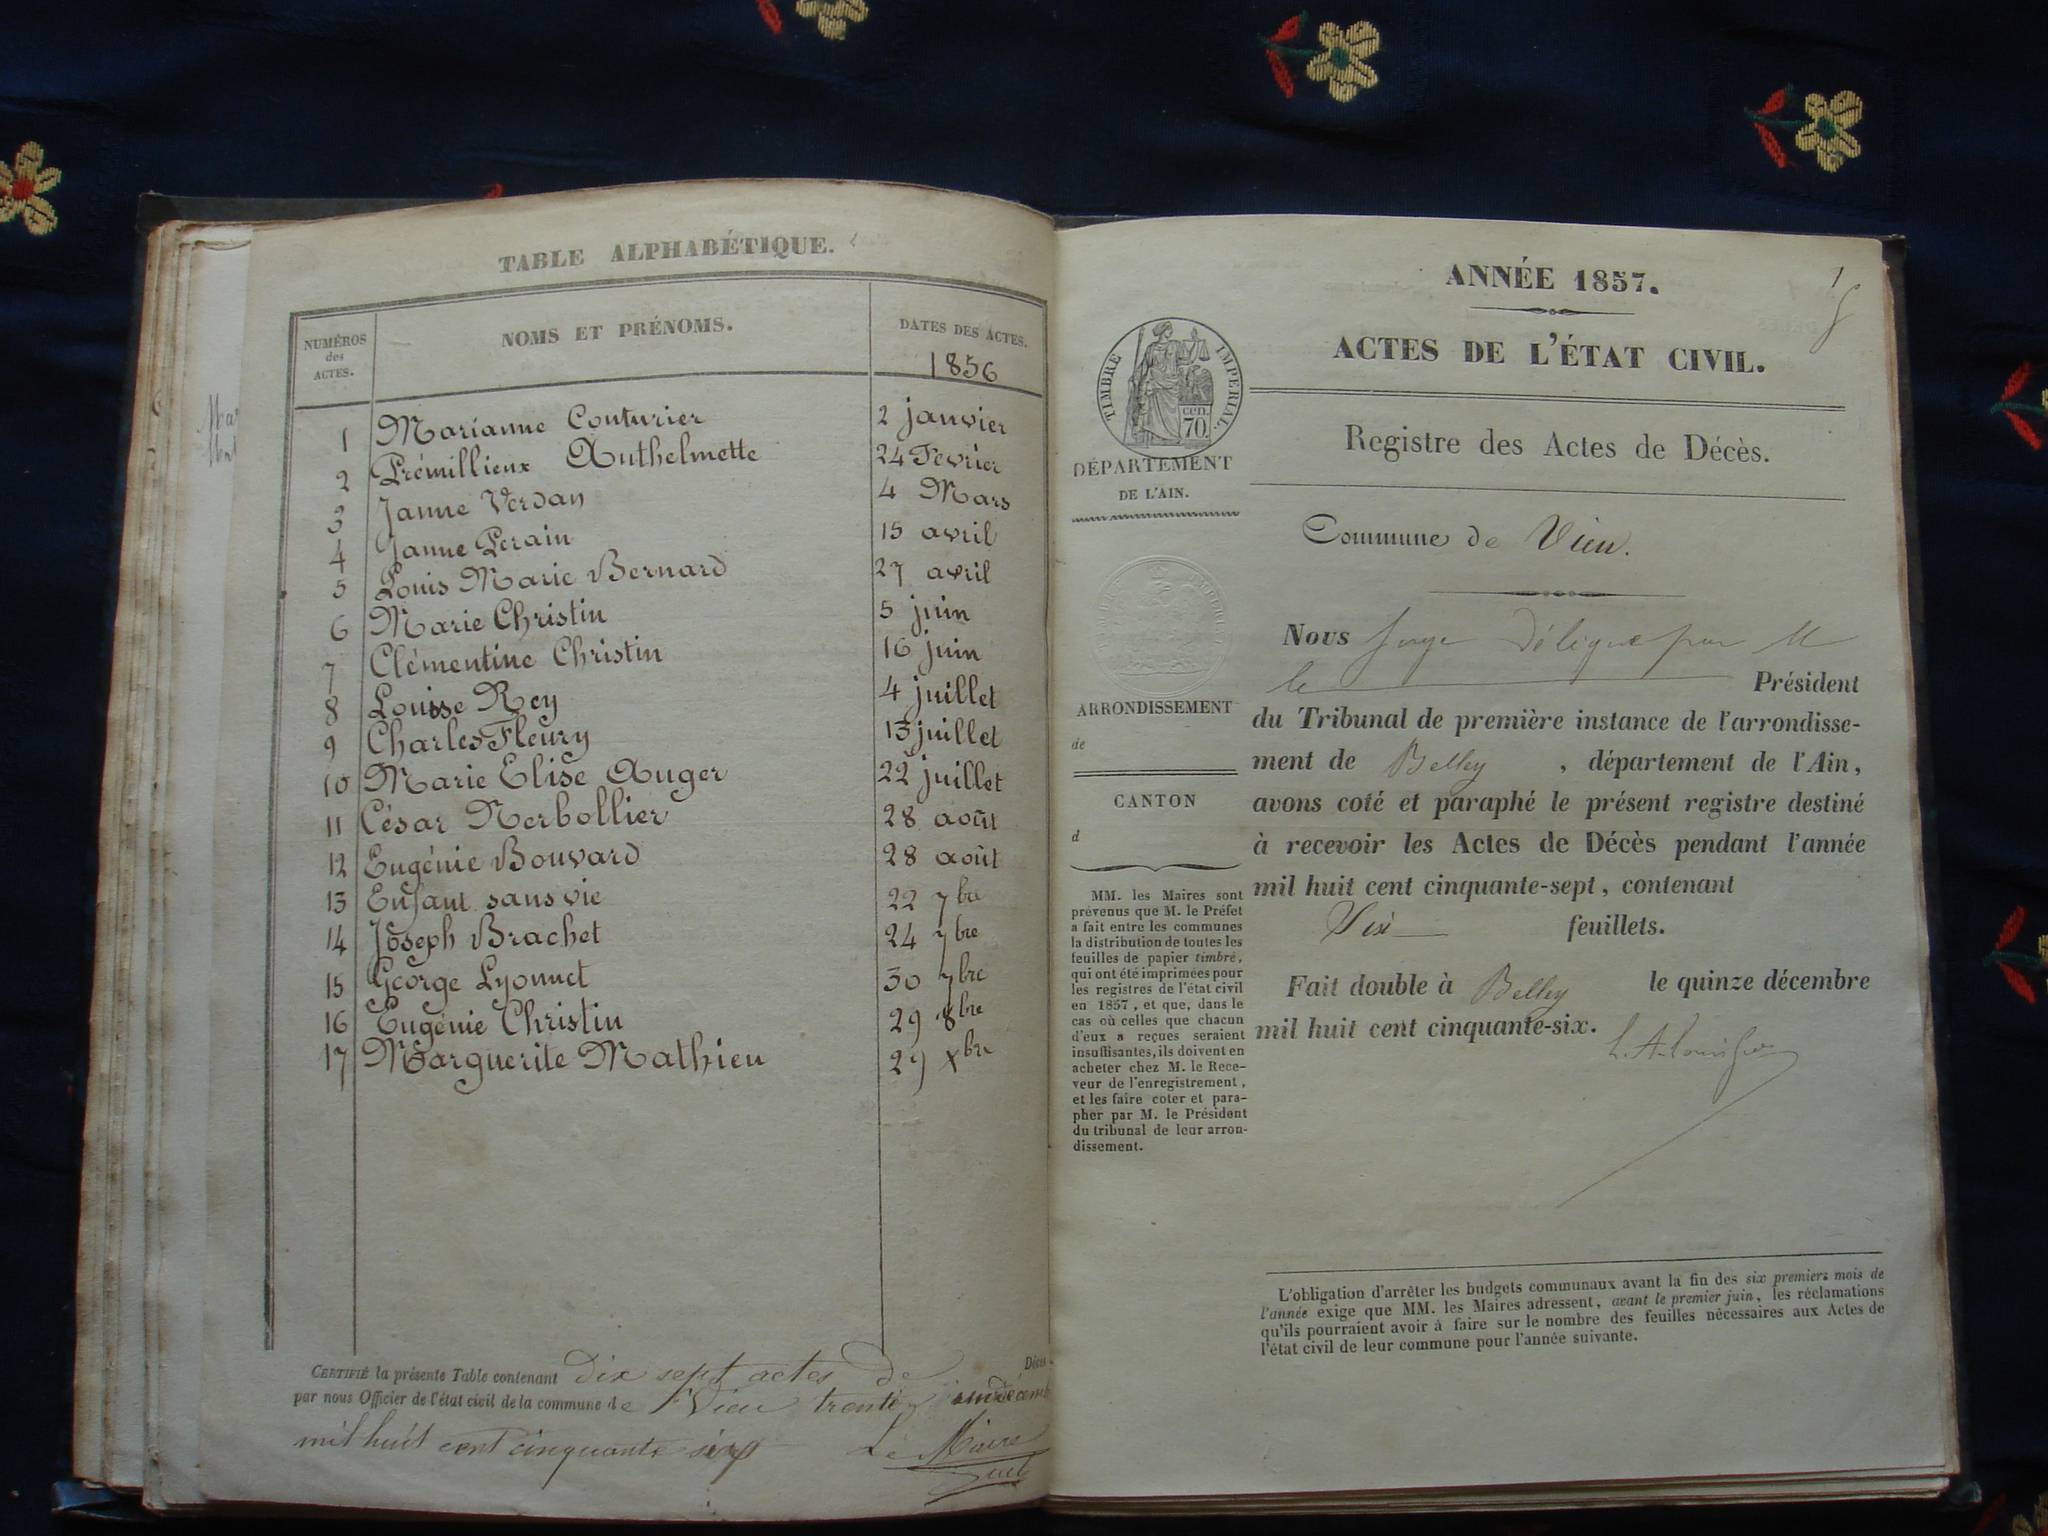 TABLE ALPHABÉTIQUE.
NUMÉROS des ACTES. NOMS ET PRÉNOMS. DATES DES ACTES.
1856
1 Marianne Couturier 2 janvier
2 Prémillieux Anthelmette 24 Fevrier
3 Janne Verdan 4 Mars
4 Janne Perain 15 avril
5 Louis Marie Bernard 27 avril
6 Marie Christin 5 juin
7 Clémentine Christin 16 juin
8 Louisse Rey 4 juillet
9 Charles Fleury 13 juillet
10 Marie Elise Auger 22 juillet
11 César Nerbollier 28 août
12 Eugénie Bouvard 28 août
13 Enfant sans vie 22 7bre
14 Joseph Brachet 24 7bre
15 George Lyonnet 30 7bre
16 Eugénie Christin 29 8bre
17 Marguerite Mathieu 29 Xbre
CERTIFIÉ la présente Table contenant Dix sept actes de Décès
par nous Officier de l'état civil de la commune de Vieu trente
mil huit cent cinquante six Le Maire
ANNÉE 1857.
1
ACTES DE L'ÉTAT CIVIL.
TIMBRE IMPERIAL.
cen. 70
DÉPARTEMENT
DE L'AIN.
Registre des Actes de Décès.
Commune de Vieu.
Nous Juge Délégué par M
le Président
du Tribunal de première instance de l'arrondisse-
ment de Belley , département de l'Ain,
avons coté et paraphé le présent registre destiné
à recevoir les Actes de Décès pendant l'année
mil huit cent cinquante-sept, contenant
feuillets.
Fait double à Belley le quinze décembre
mil huit cent cinquante-six.
ARRONDISSEMENT
de
CANTON
d
MM. les Maires sont
prévenus que M. le Préfet
a fait entre les communes
la distribution de toutes les
feuilles de papier timbré,
qui ont été imprimées pour
les registres de l'état civil
en 1857, et que, dans le
cas où celles que chacun
d'eux a reçues seraient
insuffisantes, ils doivent en
acheter chez M. le Rece-
veur de l'enregistrement,
et les faire coter et para-
pher par M. le Président
du tribunal de leur arron-
dissement.
L'obligation d'arrêter les budgets communaux avant la fin des six premiers mois de
l'année exige que MM. les Maires adressent, avant le premier juin, les réclamations
qu'ils pourraient avoir à faire sur le nombre des feuilles nécessaires aux Actes de
l'état civil de leur commune pour l'année suivante.